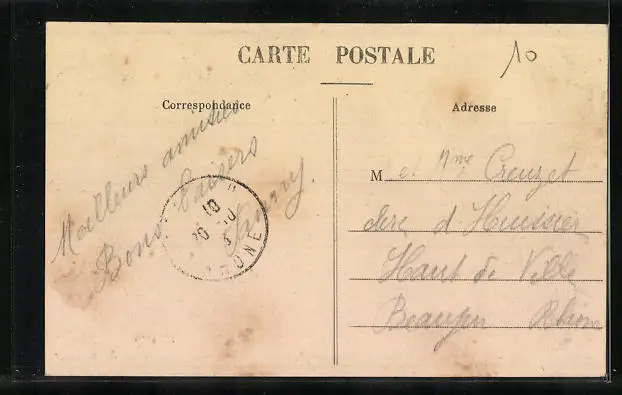 CARTE POSTALE
10
Correspondance
Adresse
Meilleurs amitiés
Bons baisers
M et Mme Creuzet
clerc d'Huissier
Haut de Ville
Beaujeu Rhône
10
RHONE